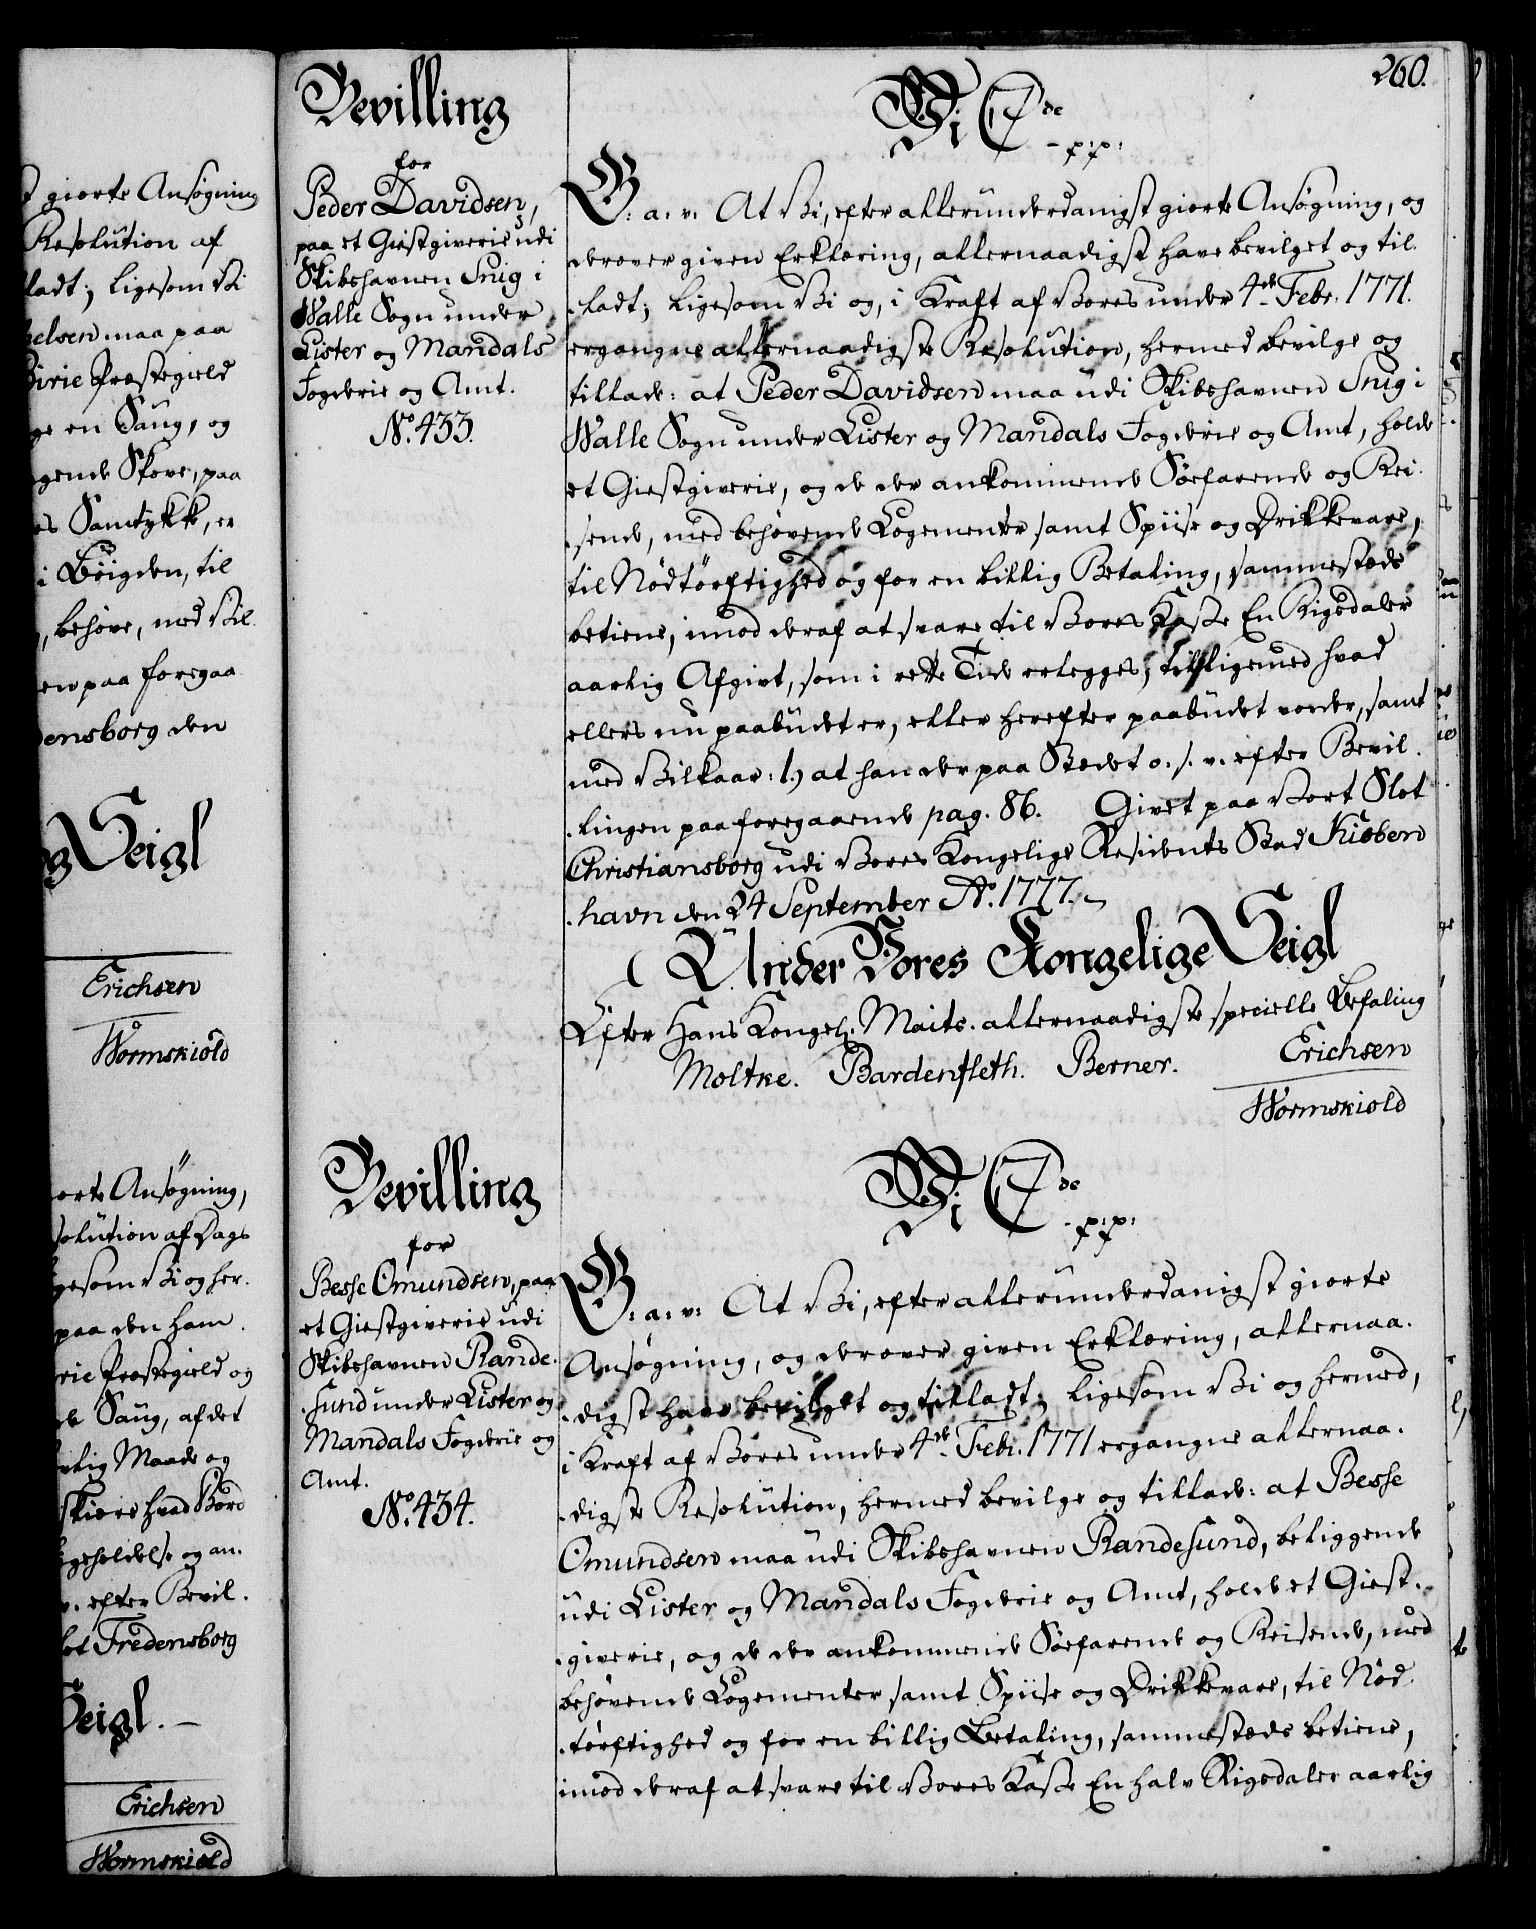 260.
Bevilling
for
Peder Davidsen,
paa et Giestgiverie udi
Skibshavnen Snig i
Walle Sogn under
Lister og Mandals
Fogderie og Amt.
No. 433.
Vi C 7de
- p:p:
G. a. v: At Vi, efter allerunderdanigst giorte Ansøgning, og
derover given Erklæring, allernaadigst have bevilget og til-
ladt; ligesom Vi og, i Kraft af Vores under 4de Febr. 1771.
ergangne allernaadigste Resolution, hermed bevilge og
tillade: at Peder Davidsen maa udi Skibshavnen Snig i
Walle Sogn under Lister og Mandals Fogderie og Amt, holde
et Giestgiverie, og de der ankommende Søefarende og Rei-
sende, med behøvende Logementer samt Spiise og Drikkevare,
til Nødtørftighed og for en billig Betaling, sammestæds
betiene, imod deraf at svare til Vores Kasse En Rigsdaler
aarlig Afgivt, som i rette Tid erlegges, tilligemed hvad
ellers nu paabudet er, eller herefter paabudet vorder, samt
med Vilkaar: 1.) at han der paa Stædet o. s. v. efter Bevil-
lingen paa foregaaende pag. 86. Givet paa Vort Slot
Christiansborg udi Vores Kongelige Residents Stad Kiøben
havn den 24 September Ao. 1777.
Under Vores Kongelige Seigl
Efter Hans Kongel. Maits. allernaadigste specielle Befaling
Moltke. Bardenfleth. Berner. Erichsen
Wormskiold
Bevilling
for
Besse Omundsen, paa
et Giestgiverie udi
Skibshavnen Rande-
sund under Lister og
Mandals Fogderie og
Amt.
No. 434.
Vi C 7de
- p:p:
G. a. v: At Vi, efter allerunderdanigst giorte
Ansøgning, og derover given Erklæring, allernaa-
digst have bevilget og tilladt; ligesom Vi og hermed,
i Kraft af Vores under 4de Febr. 1771 ergangne allernaa-
digste Resolution, hermed bevilge og tillade: at Besse
Omundsen maa udi Skibshavnen Randesund, beliggende
udi Lister og Mandals Fogderie og Amt, holde et Giest-
giverie, og de der ankommende Søefarende og Reisende, med
behøvende Logementer samt Spiise og Drikkevare, til Nød-
tørftighed og for en billig Betaling, sammestæds betiene,
imod deraf at svare til Vores Kasse En halv Rigsdaler aarlig
giorte Ansøgning
Resolution af
ladt; ligesom Vi
helsen maa paa
Birie Præstegield
ge en Saug, og
gende Skove, paa
es Samtykke, er
i Bøigden, til
, behøve, med Vil-
en paa foregaa
densborg den
og Seigl
Erichsen
Wormskiold
orte Ansøgning,
solution af Dags
gesom Vi og her-
paa den ham
rie Præstegield og
de Saug, af det
rlig Maade og
skiære hvad Bord
geholdelse og an-
v. efter Bevil-
lot Fredensborg
Seigl. -
Erichsen
Wormskiold